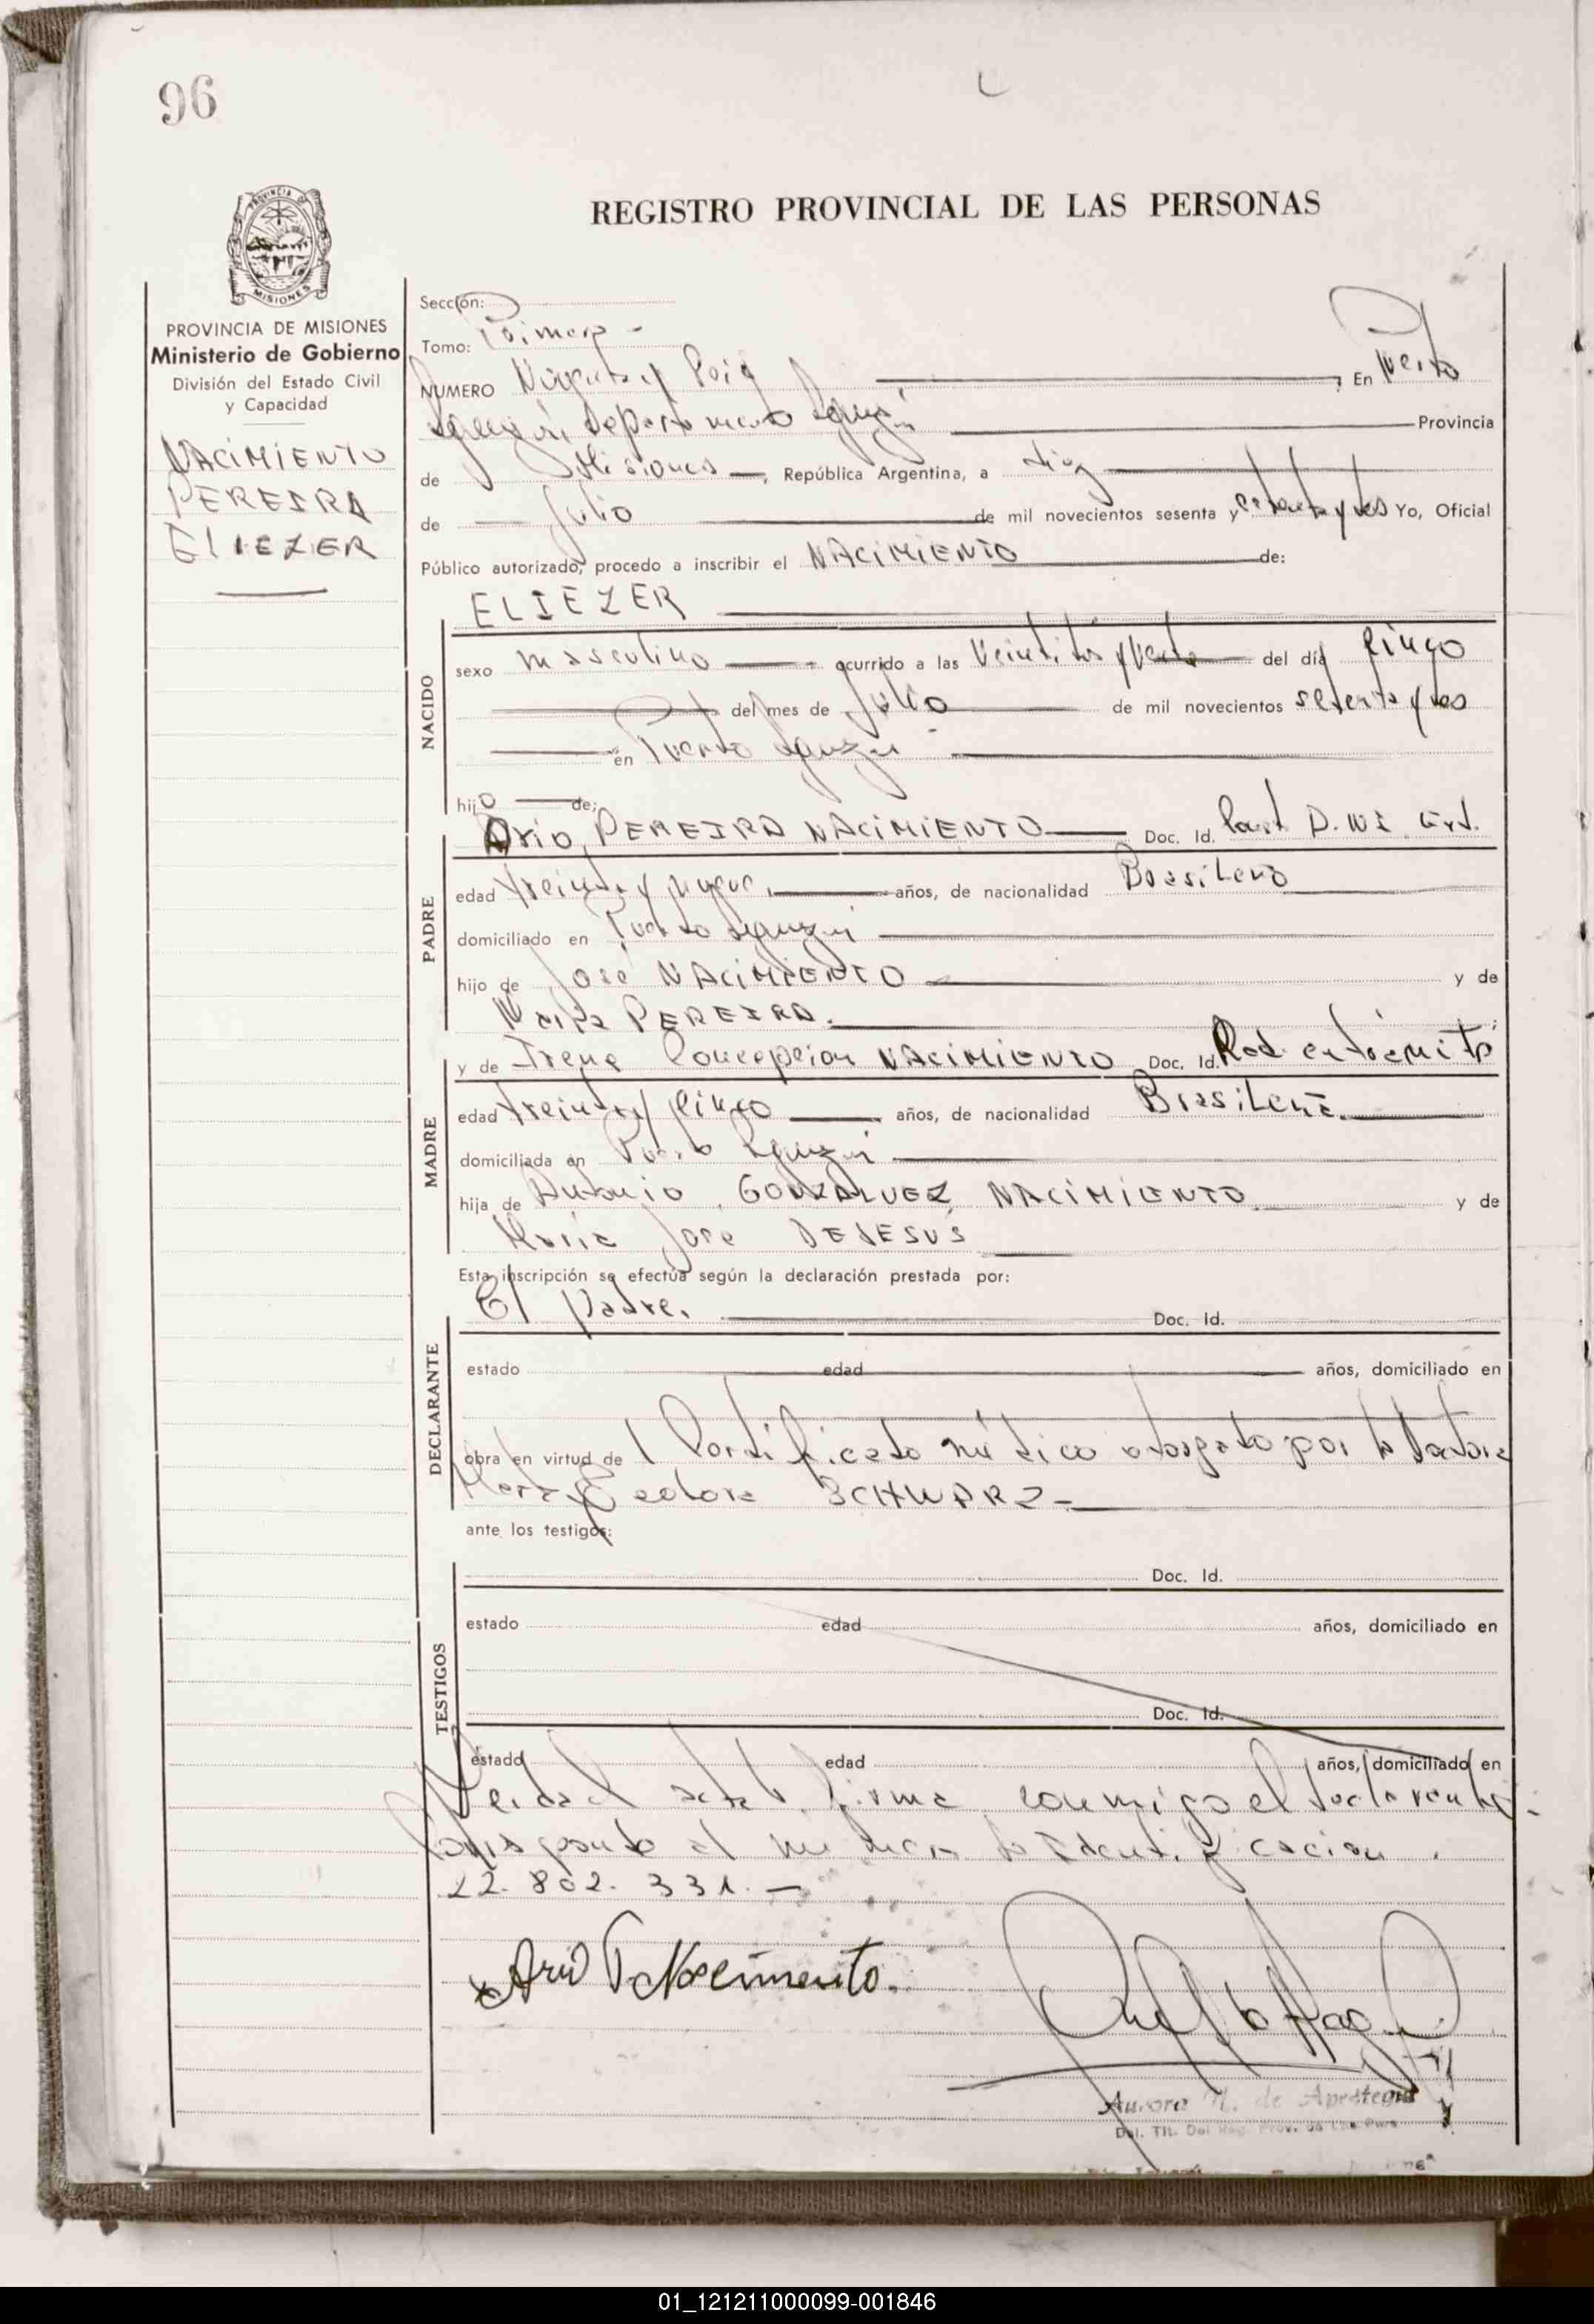 96
REGISTRO PROVINCIAL DE LAS PERSONAS
PROVINCIA DE
MISIONES
PROVINCIA DE MISIONES
Ministerio de Gobierno
División del Estado Civil
y Capacidad
NACIMIENTO
PEREIRA
ELIEZER
Sección:
Tomo: Primera -
NUMERO Noventa y Seis , En Puerto
Iguazú, Departamento Iguazú Provincia
de Misiones , República Argentina, a diez
de Julio de mil novecientos sesenta y setenta y tres Yo, Oficial
Público autorizado, procedo a inscribir el NACIMIENTO de:
ELIEZER
NACIDO
sexo masculino ocurrido a las veintitrés y veinte del día cinco
del mes de Julio de mil novecientos setenta y tres
en Puerto Iguazú
hijo de:
PADRE
Ario, PEREIRA NACIMIENTO Doc. Id. D.N.I.
edad treinta y nueve, años, de nacionalidad Brasilero
domiciliado en Puerto Iguazú
hijo de José NACIMIENTO y de
María PEREIRA.
MADRE
y de Irene Concepcion NACIMIENTO Doc. Id. Rad. en trámite
edad treinta y cinco años, de nacionalidad Brasilera.
domiciliada en Puerto Iguazú
hija de Antonio GONZALVEZ NACIMIENTO y de
María José DEJESUS
Esta inscripción se efectúa según la declaración prestada por:
El padre. Doc. Id.
DECLARANTE
estado edad años, domiciliado en
obra en virtud de Certificado médico otorgado por la Doctora
SCHWARZ -
ante los testigos:
TESTIGOS
Doc. Id.
estado edad años, domiciliado en
Doc. Id.
estado edad años, domiciliado en
Leída el acta la firma conmigo el declarante.-
Corresponde el número de Identificación.
22.802.331.-
Ario P Nacimento.
Aurora N. de Aprategui
01_121211000099-001846